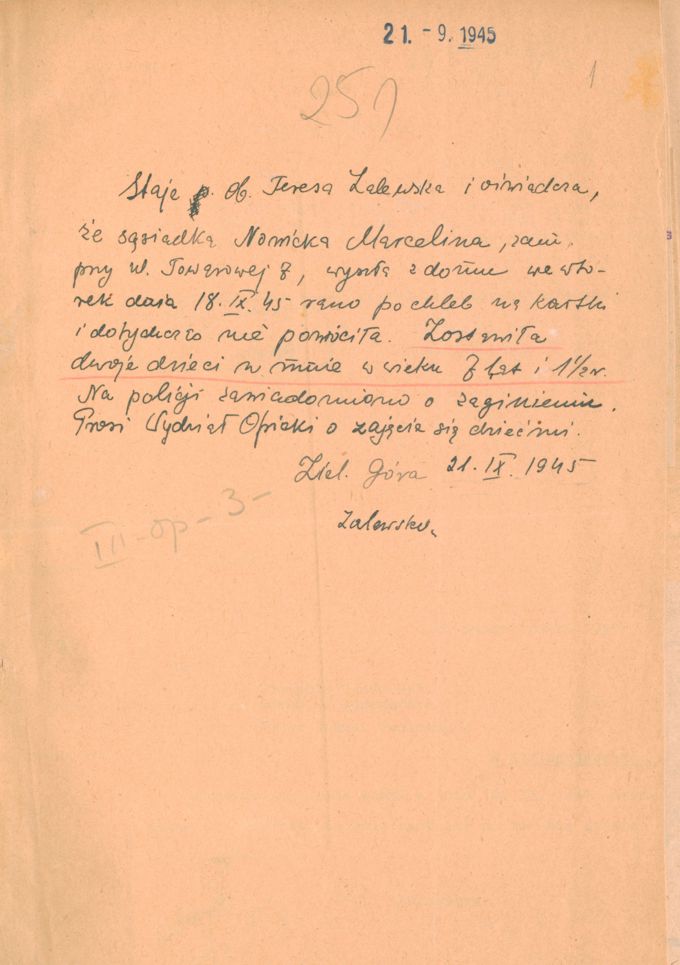 21. -9. 1945
1
251
Staje p. ob. Teresa Zalewska i oświadcza,
że sąsiadka Nowicka Marcelina, zam.
przy ul. Towarowej 7, wyszła z domu we wto-
rek dnia 18.IX.45 rano po chleb na kartki
i dotychczas nie powróciła. Zostawiła
dwoje dzieci u mnie w wieku 7 lat i 1 1/2 r.
Na policji zawiadomiono o zaginieniu.
Prosi Wydział Opieki o zajęcia się dziećmi.
Ziel. Góra 21.IX.1945
Zalewska
III-op-3-